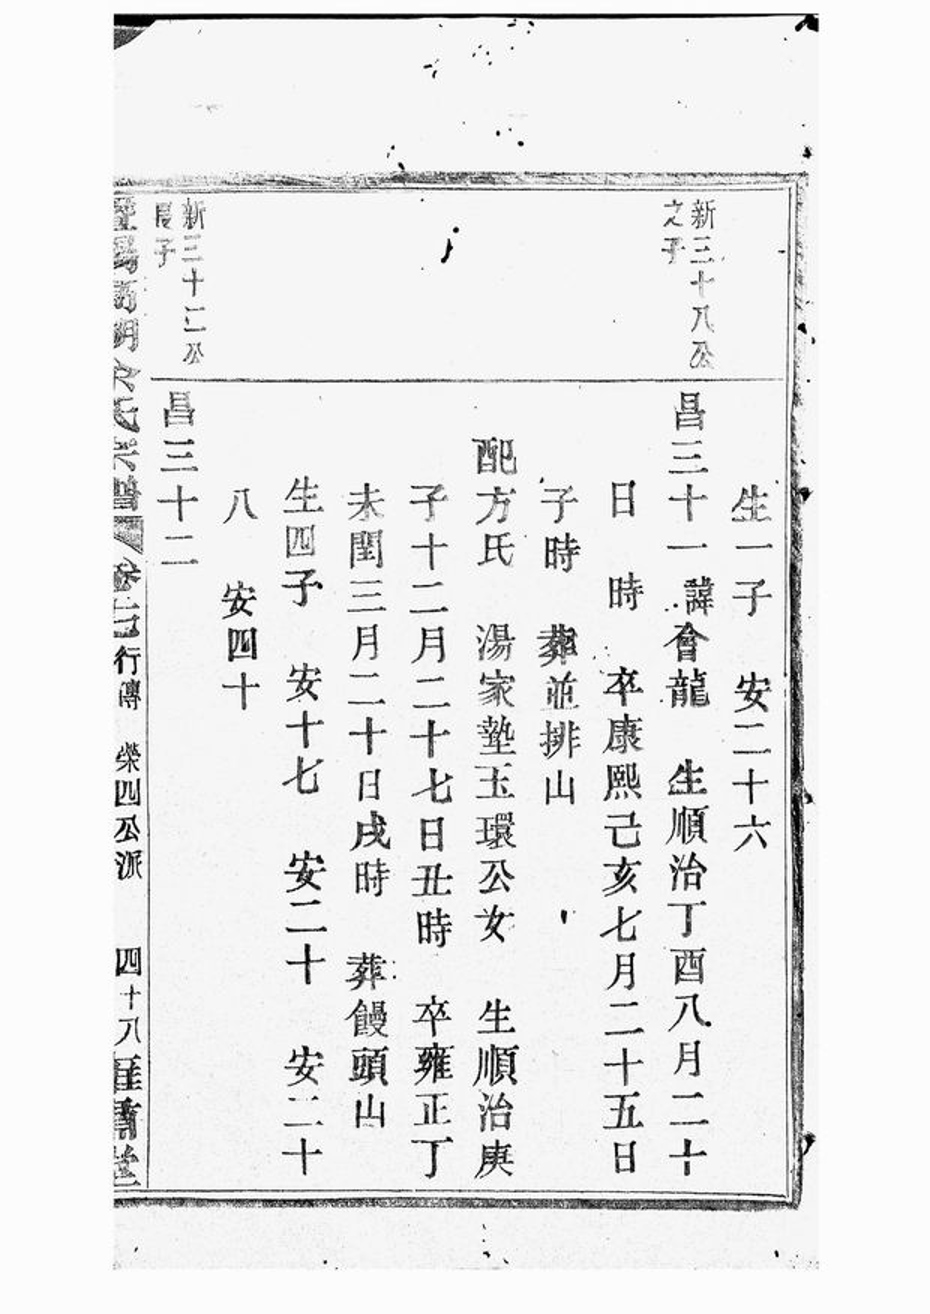 生一子　安二十六
新三十八公
之子
昌三十一諱會龍　生順治丁酉八月二十
日　時　卒康熙己亥七月二十五日
子時　葬並排山
配方氏　湯家墊玉環公女　生順治庚
子十二月二十七日丑時　卒雍正丁
未閏三月二十日戌時　葬饅頭山
生四子　安十七　安二十　安二十
八　安四十
新三十二公
長子
昌三十二
暨陽高湖 氏宗譜 卷 行傳　榮四公派　四十八 堂